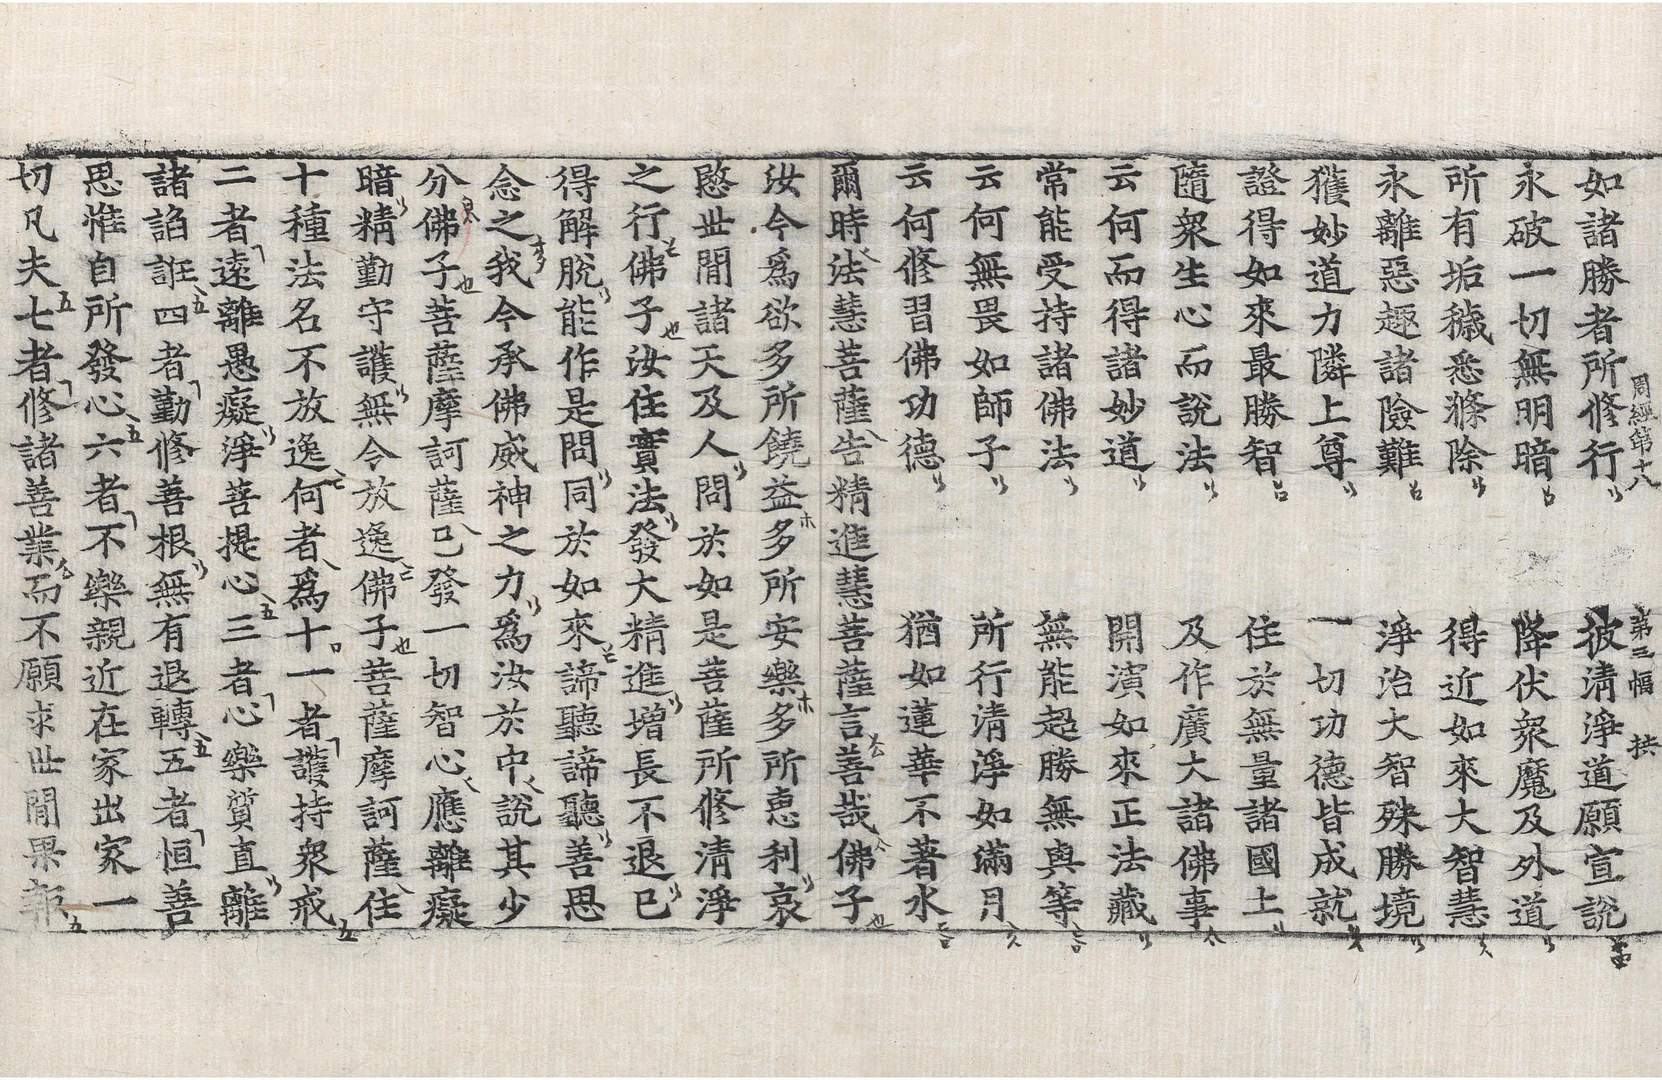 周經第十八 第三幅 拱
如諸勝者所修行 彼淸淨道願宣說
永破一切無明暗 降伏衆魔及外道
所有垢穢悉滌除 得近如來大智慧
永離惡趣諸險難 淨治大智殊勝境
獲妙道力隣上尊 一切功德皆成就
證得如來最勝智 住於無量諸國土
隨衆生心而說法 及作廣大諸佛事
云何而得諸妙道 開演如來正法藏
常能受持諸佛法 無能超勝無與等
云何無畏如師子 所行清淨如滿月
云何修習佛功德 猶如蓮華不著水
爾時法慧菩薩告精進慧菩薩言善哉佛子
汝今爲欲多所饒益多所安樂多所惠利哀
愍世間諸天及人問於如是菩薩所修清淨
之行佛子汝住實法發大精進增長不退已
得解脫能作是問同於如來諦聽諦聽善思
念之我今承佛威神之力爲汝於中說其少
分佛子菩薩摩訶薩已發一切智心應離癡
暗精勤守護無令放逸佛子菩薩摩訶薩住
十種法名不放逸何者爲十一者護持衆戒
二者遠離愚癡淨菩提心三者心樂質直離
諸諂誑四者勤修善根無有退轉五者恒善
思惟自所發心六者不樂親近在家出家一
切凡夫七者修諸善業而不願求世間果報